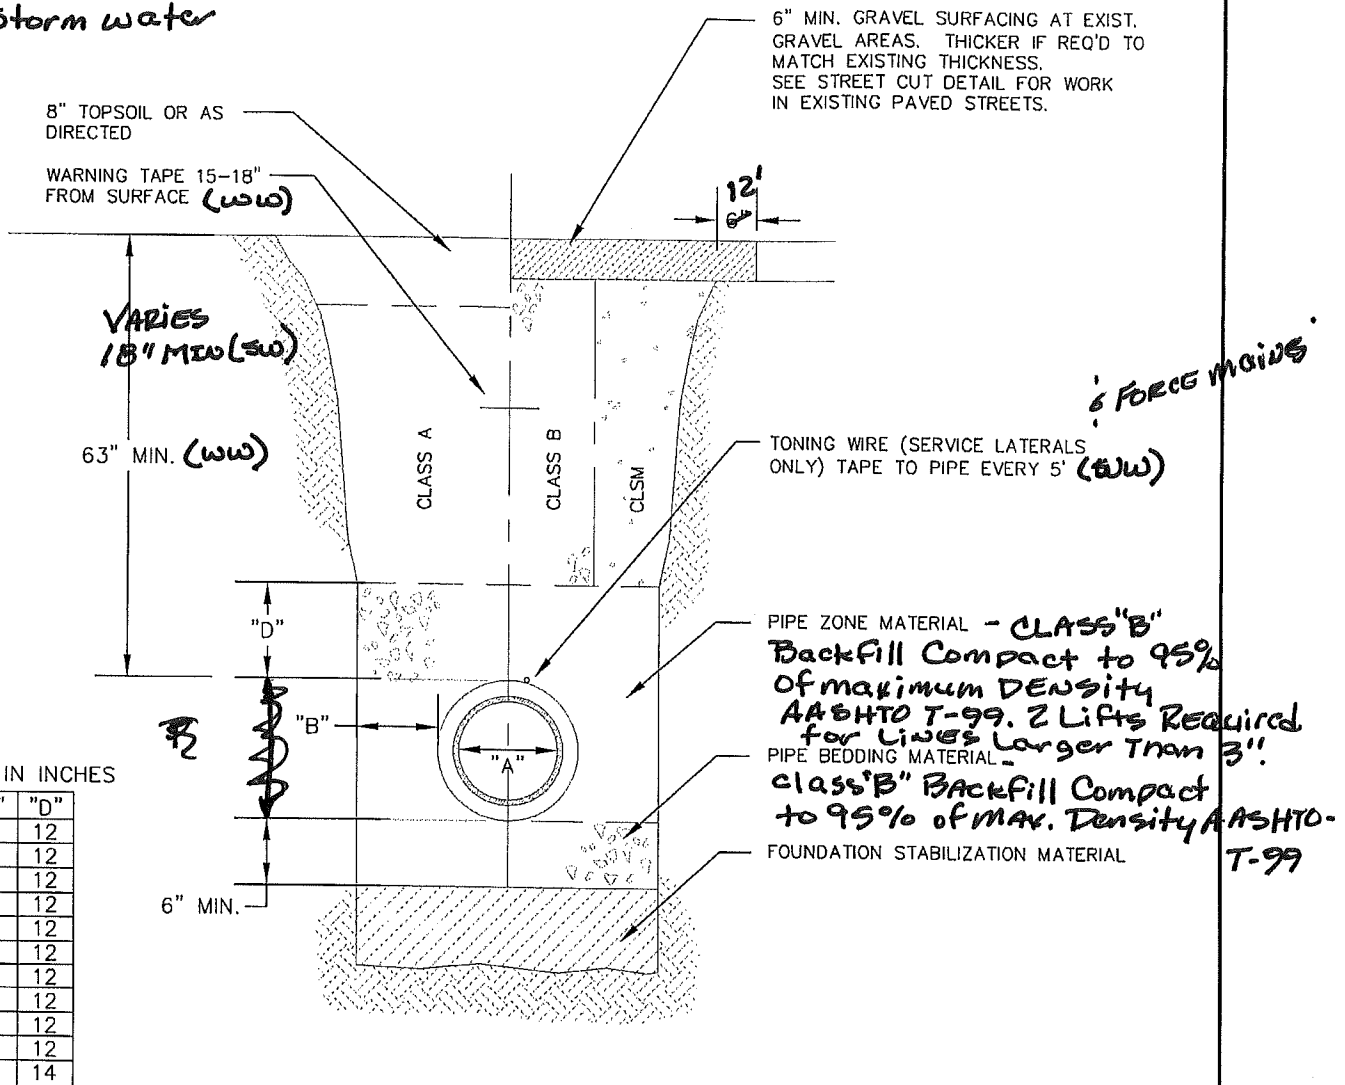 Storm water
6" MIN. GRAVEL SURFACING AT EXIST.
GRAVEL AREAS. THICKER IF REQ'D TO
MATCH EXISTING THICKNESS.
SEE STREET CUT DETAIL FOR WORK
IN EXISTING PAVED STREETS.
8" TOPSOIL OR AS
DIRECTED
WARNING TAPE 15-18"
FROM SURFACE (WW)
12'
6"
VARIES
18" MIN (SW)
63" MIN. (WW)
CLASS A
CLASS B
CLSM
FORCE MAINS
TONING WIRE (SERVICE LATERALS
ONLY) TAPE TO PIPE EVERY 5'
"D"
PIPE ZONE MATERIAL - CLASS "B"
Backfill Compact to 95%
Of maximum DENSITY
AASHTO T-99. 2 Lifts Required
for LINES Larger Than 3".
"B"
"A"
PIPE BEDDING MATERIAL -
class "B" BACKfill Compact
to 95% of MAX. Density AASHTO-
T-99
FOUNDATION STABILIZATION MATERIAL
6" MIN.
IN INCHES
"D"
12
12
12
12
12
12
12
12
12
12
14